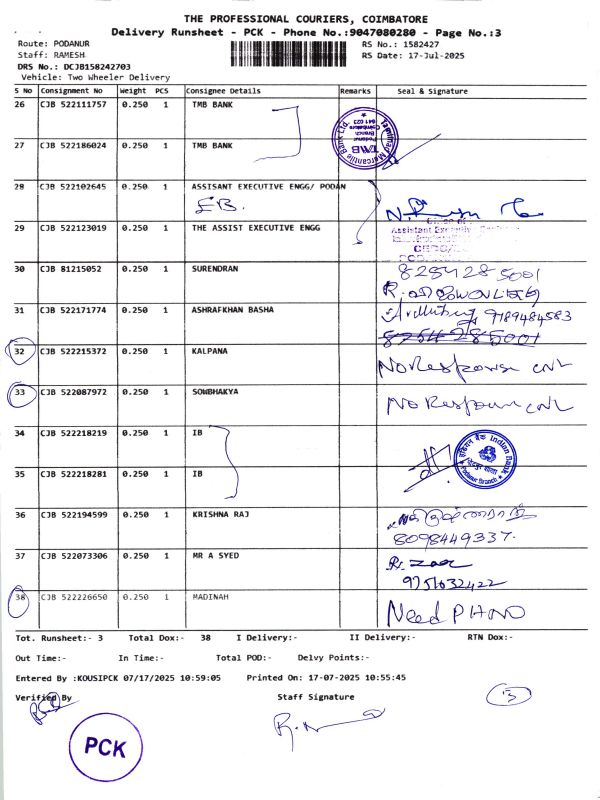 THE PROFESSIONAL COURIERS, COIMBATORE
Delivery Runsheet - PCK - Phone No.:9047080280 - Page No.:3
Route: PODANUR RS No.: 1582427
Staff: RAMESH RS Date: 17-Jul-2025
DRS No.: DCJB158242703
Vehicle: Two Wheeler Delivery
S No Consignment No Weight PCS Consignee Details Remarks Seal & Signature
26 CJB 522111757 0.250 1 TMB BANK
Tamilnad Mercantile Bank Ltd.
TMB
Podanur
Branch
Coimbatore
641 023
27 CJB 522186024 0.250 1 TMB BANK
28 CJB 522102645 0.250 1 ASSISANT EXECUTIVE ENGG/ PODAN
EB.
29 CJB 522123019 0.250 1 THE ASSIST EXECUTIVE ENGG
Assistant Executive
30 CJB 81215052 0.250 1 SURENDRAN
8284285001
31 CJB 522171774 0.250 1 ASHRAFKHAN BASHA
9789484583
32 CJB 522215372 0.250 1 KALPANA
No Response CNL
33 CJB 522087972 0.250 1 SOWBHAKYA
No Respoun CNL
34 CJB 522218219 0.250 1 IB
इंडियन बैंक Indian Bank
Podanur Branch
35 CJB 522218281 0.250 1 IB
36 CJB 522194599 0.250 1 KRISHNA RAJ
8098449337.
37 CJB 522073306 0.250 1 MR A SYED
9751032422
38 CJB 522226650 0.250 1 MADINAH
Need PHNO
Tot. Runsheet:- 3 Total Dox:- 38 I Delivery:- II Delivery:- RTN Dox:-
Out Time:- In Time:- Total POD:- Delvy Points:-
Entered By :KOUSIPCK 07/17/2025 10:59:05 Printed On: 17-07-2025 10:55:45
Verified By Staff Signature
3
PCK